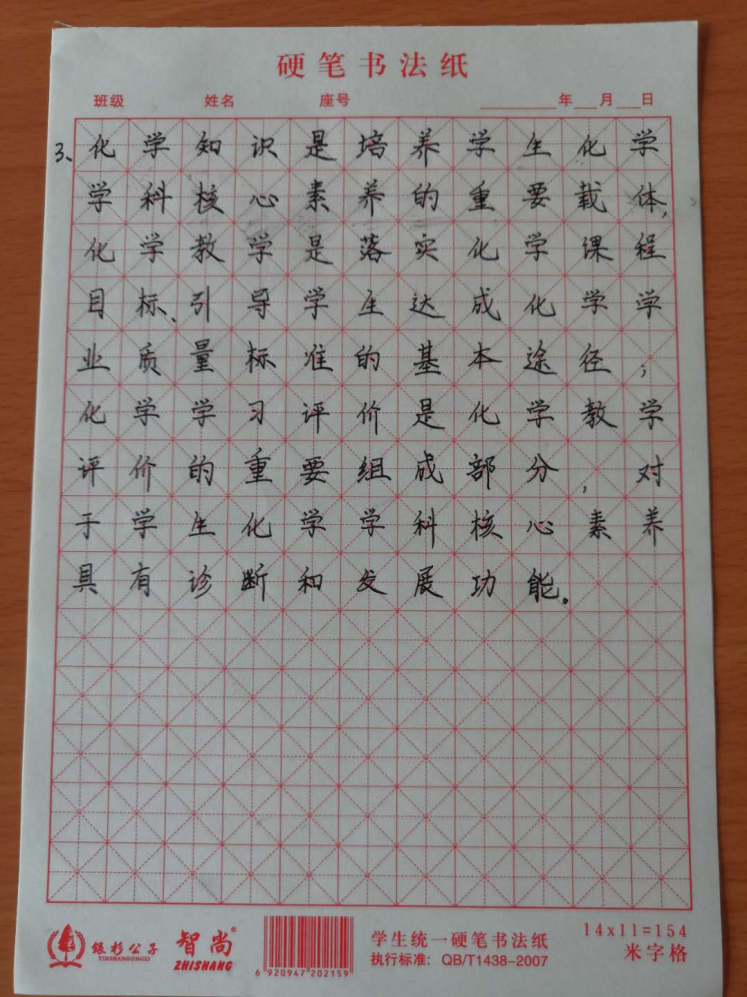 硬笔书法纸
班级 姓名 座号 年 月 日
3、化学知识是培养学生化学
学科核心素养的重要载体,
化学教学是落实化学课程
目标、引导学生达成化学学
业质量标准的基本途径;
化学学习评价是化学教学
评价的重要组成部分,对
于学生化学学科核心素养
具有诊断和发展功能。
银杉公子 YINSHANGONGZI
智尚 ZHISHANG
6 920947 202159
学生统一硬笔书法纸
执行标准: QB/T1438-2007
14x11=154
米字格